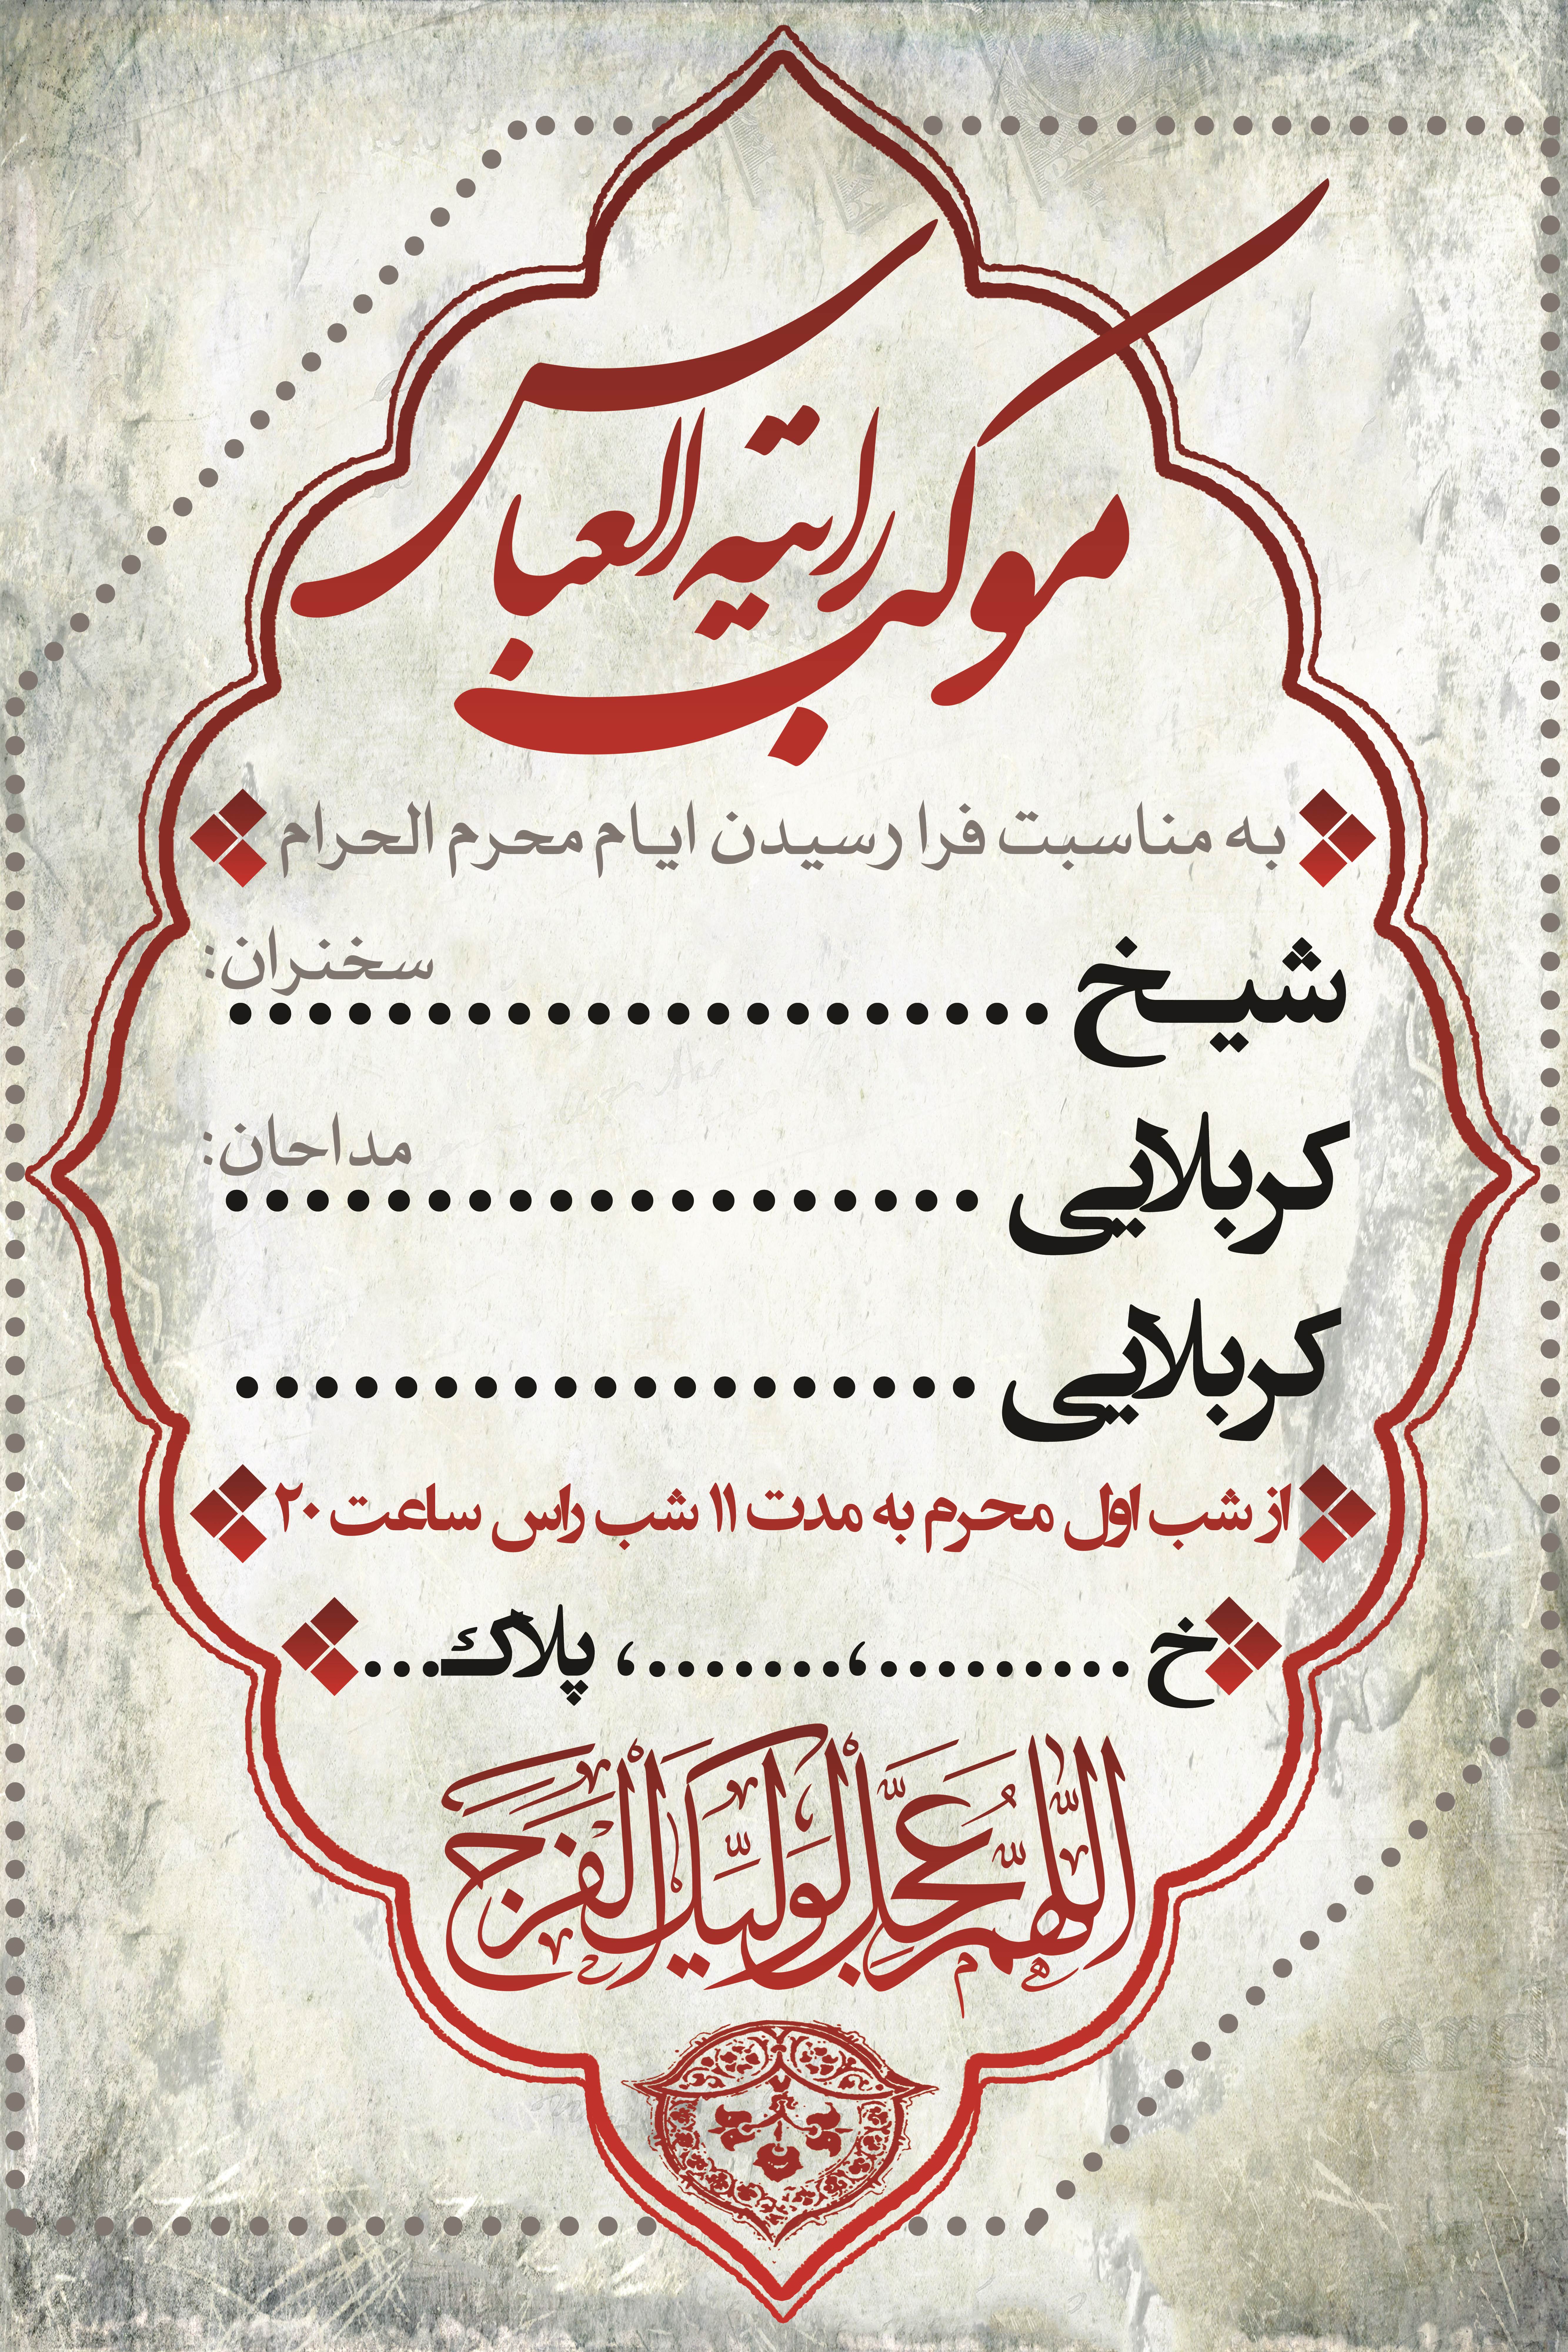 موکب رایته العباس
به مناسبت فرا رسیدن ایام محرم الحرام
سخنران:
شیخ .....................
مداحان:
کربلایی ...................
کربلایی ...................
از شب اول محرم به مدت ۱۱ شب راس ساعت ۲۰
خ .........، .......، پلاک...
اللّٰهُمَّ عَجِّلْ لِوَلِیِّكَ الْفَرَجَ